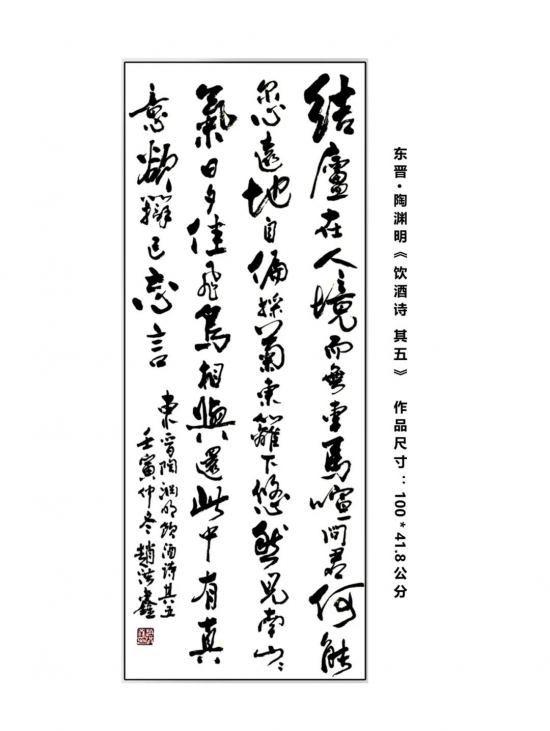 东晋·陶渊明《饮酒诗 其五》 作品尺寸：100*41.8公分
結廬在人境而無車馬喧問君何能
尔心遠地自偏採菊東籬下悠然見南山〻
氣日夕佳飛鳥相與還此中有真
意欲辯已忘言
東晉陶淵明飲酒诗其五
壬寅仲冬趙洪鑫